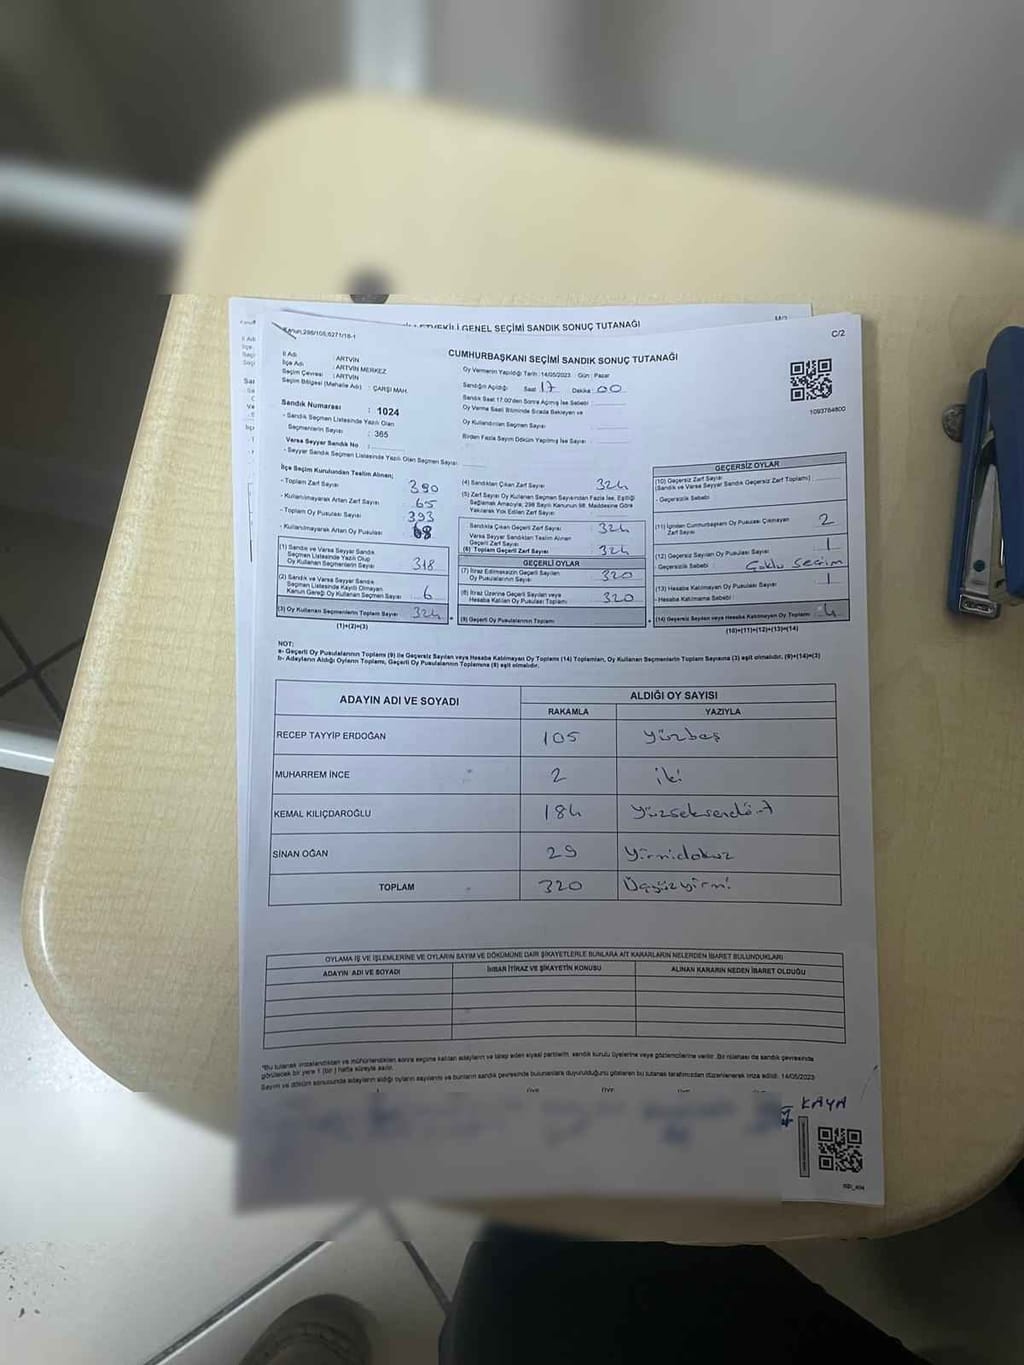 LETVEKİLİ GENEL SEÇİMİ SANDIK SONUÇ TUTANAĞI
Kanun:298/105,6271/18-1
C/2
CUMHURBAŞKANI SEÇİMİ SANDIK SONUÇ TUTANAĞI
İl Adı : ARTVİN
İlçe Adı : ARTVİN MERKEZ
Seçim Çevresi : ARTVİN
Seçim Bölgesi (Mahalle Adı) : ÇARŞI MAH.
Oy Vermenin Yapıldığı Tarih :14/05/2023 Gün : Pazar
Sandığın Açıldığı Saat 17 Dakika 00
Sandık Saat 17:00'den Sonra Açılmış İse Sebebi
Oy Verme Saati Bitiminde Sırada Bekleyen ve
Oy Kullandırılan Seçmen Sayısı
Birden Fazla Sayım Döküm Yapılmış İse Sayısı :
1093764800
Sandık Numarası : 1024
- Sandık Seçmen Listesinde Yazılı Olan
Seçmenlerin Sayısı : 365
Varsa Seyyar Sandık No :
- Seyyar Sandık Seçmen Listesinde Yazılı Olan Seçmen Sayısı:
İlçe Seçim Kurulundan Teslim Alınan;
- Toplam Zarf Sayısı 390
- Kullanılmayarak Artan Zarf Sayısı 65
- Toplam Oy Pusulası Sayısı 393
- Kullanılmayarak Artan Oy Pusulası 68
(1) Sandık ve Varsa Seyyar Sandık
Seçmen Listesinde Yazılı Olup
Oy Kullanan Seçmenlerin Sayısı 318
(2) Sandık ve Varsa Seyyar Sandık
Seçmen Listesinde Kayıtlı Olmayan
Kanun Gereği Oy Kullanan Seçmen Sayısı 6
(3) Oy Kullanan Seçmenlerin Toplam Sayısı 324
(1)+(2)=(3)
(4) Sandıktan Çıkan Zarf Sayısı 324
(5) Zarf Sayısı Oy Kullanan Seçmen Sayısından Fazla İse, Eşitliği
Sağlamak Amacıyla, 298 Sayılı Kanunun 98. Maddesine Göre
Yakılarak Yok Edilen Zarf Sayısı
Sandıkta Çıkan Geçerli Zarf Sayısı 324
Varsa Seyyar Sandıktan Teslim Alınan
Geçerli Zarf Sayısı
(6) Toplam Geçerli Zarf Sayısı 324
GEÇERLİ OYLAR
(7) İtiraz Edilmeksizin Geçerli Sayılan
Oy Pusulalarının Sayısı 320
(8) İtiraz Üzerine Geçerli Sayılan veya
Hesaba Katılan Oy Pusulası Toplamı 320
(9) Geçerli Oy Pusulalarının Toplamı
GEÇERSİZ OYLAR
(10) Geçersiz Zarf Sayısı
(Sandık ve Varsa Seyyar Sandık Geçersiz Zarf Toplamı) :
- Geçersizlik Sebebi
(11) İçinden Cumhurbaşkanı Oy Pusulası Çıkmayan
Zarf Sayısı 2
(12) Geçersiz Sayılan Oy Pusulası Sayısı 1
- Geçersizlik Sebebi : Çoklu Seçim
(13) Hesaba Katılmayan Oy Pusulası Sayısı 1
- Hesaba Katılmama Sebebi :
(14) Geçersiz Sayılan veya Hesaba Katılmayan Oy Toplamı : 4
(10)+(11)+(12)+(13)=(14)
NOT:
a- Geçerli Oy Pusulalarının Toplamı (9) ile Geçersiz Sayılan veya Hesaba Katılmayan Oy Toplamı (14) Toplamları, Oy Kullanan Seçmenlerin Toplam Sayısına (3) eşit olmalıdır. (9)+(14)=(3)
b- Adayların Aldığı Oyların Toplamı, Geçerli Oy Pusulalarının Toplamına (9) eşit olmalıdır.
ADAYIN ADI VE SOYADI ALDIĞI OY SAYISI
RAKAMLA YAZIYLA
RECEP TAYYİP ERDOĞAN 105 Yüzbeş
MUHARREM İNCE 2 iki
KEMAL KILIÇDAROĞLU 184 Yüzseksendört
SİNAN OĞAN 29 Yirmidokuz
TOPLAM 320 Üçyüzyirmi
OYLAMA İŞ VE İŞLEMLERİNE VE OYLARIN SAYIM VE DÖKÜMÜNE DAİR ŞİKAYETLERLE BUNLARA AİT KARARLARIN NELERDEN İBARET BULUNDUKLARI
ADAYIN ADI VE SOYADI İHBAR İTİRAZ VE ŞİKAYETİN KONUSU ALINAN KARARIN NEDEN İBARET OLDUĞU
*Bu tutanak imzalandıktan ve mühürlendikten sonra seçime katılan adayların ve talep eden siyasi partilerin, sandık kurulu üyelerine veya gözlemcilerine verilir. Bir nüshası da sandık çevresinde
görülecek bir yere 1 (bir) hafta süreyle asılır.
Sayım ve döküm sonucunda adayların aldığı oyların sayılarını ve bunların sandık çevresinde bulunanlara duyurulduğunu gösteren bu tutanak tarafımızdan düzenlenerek imza edildi. 14/05/2023
KAYA